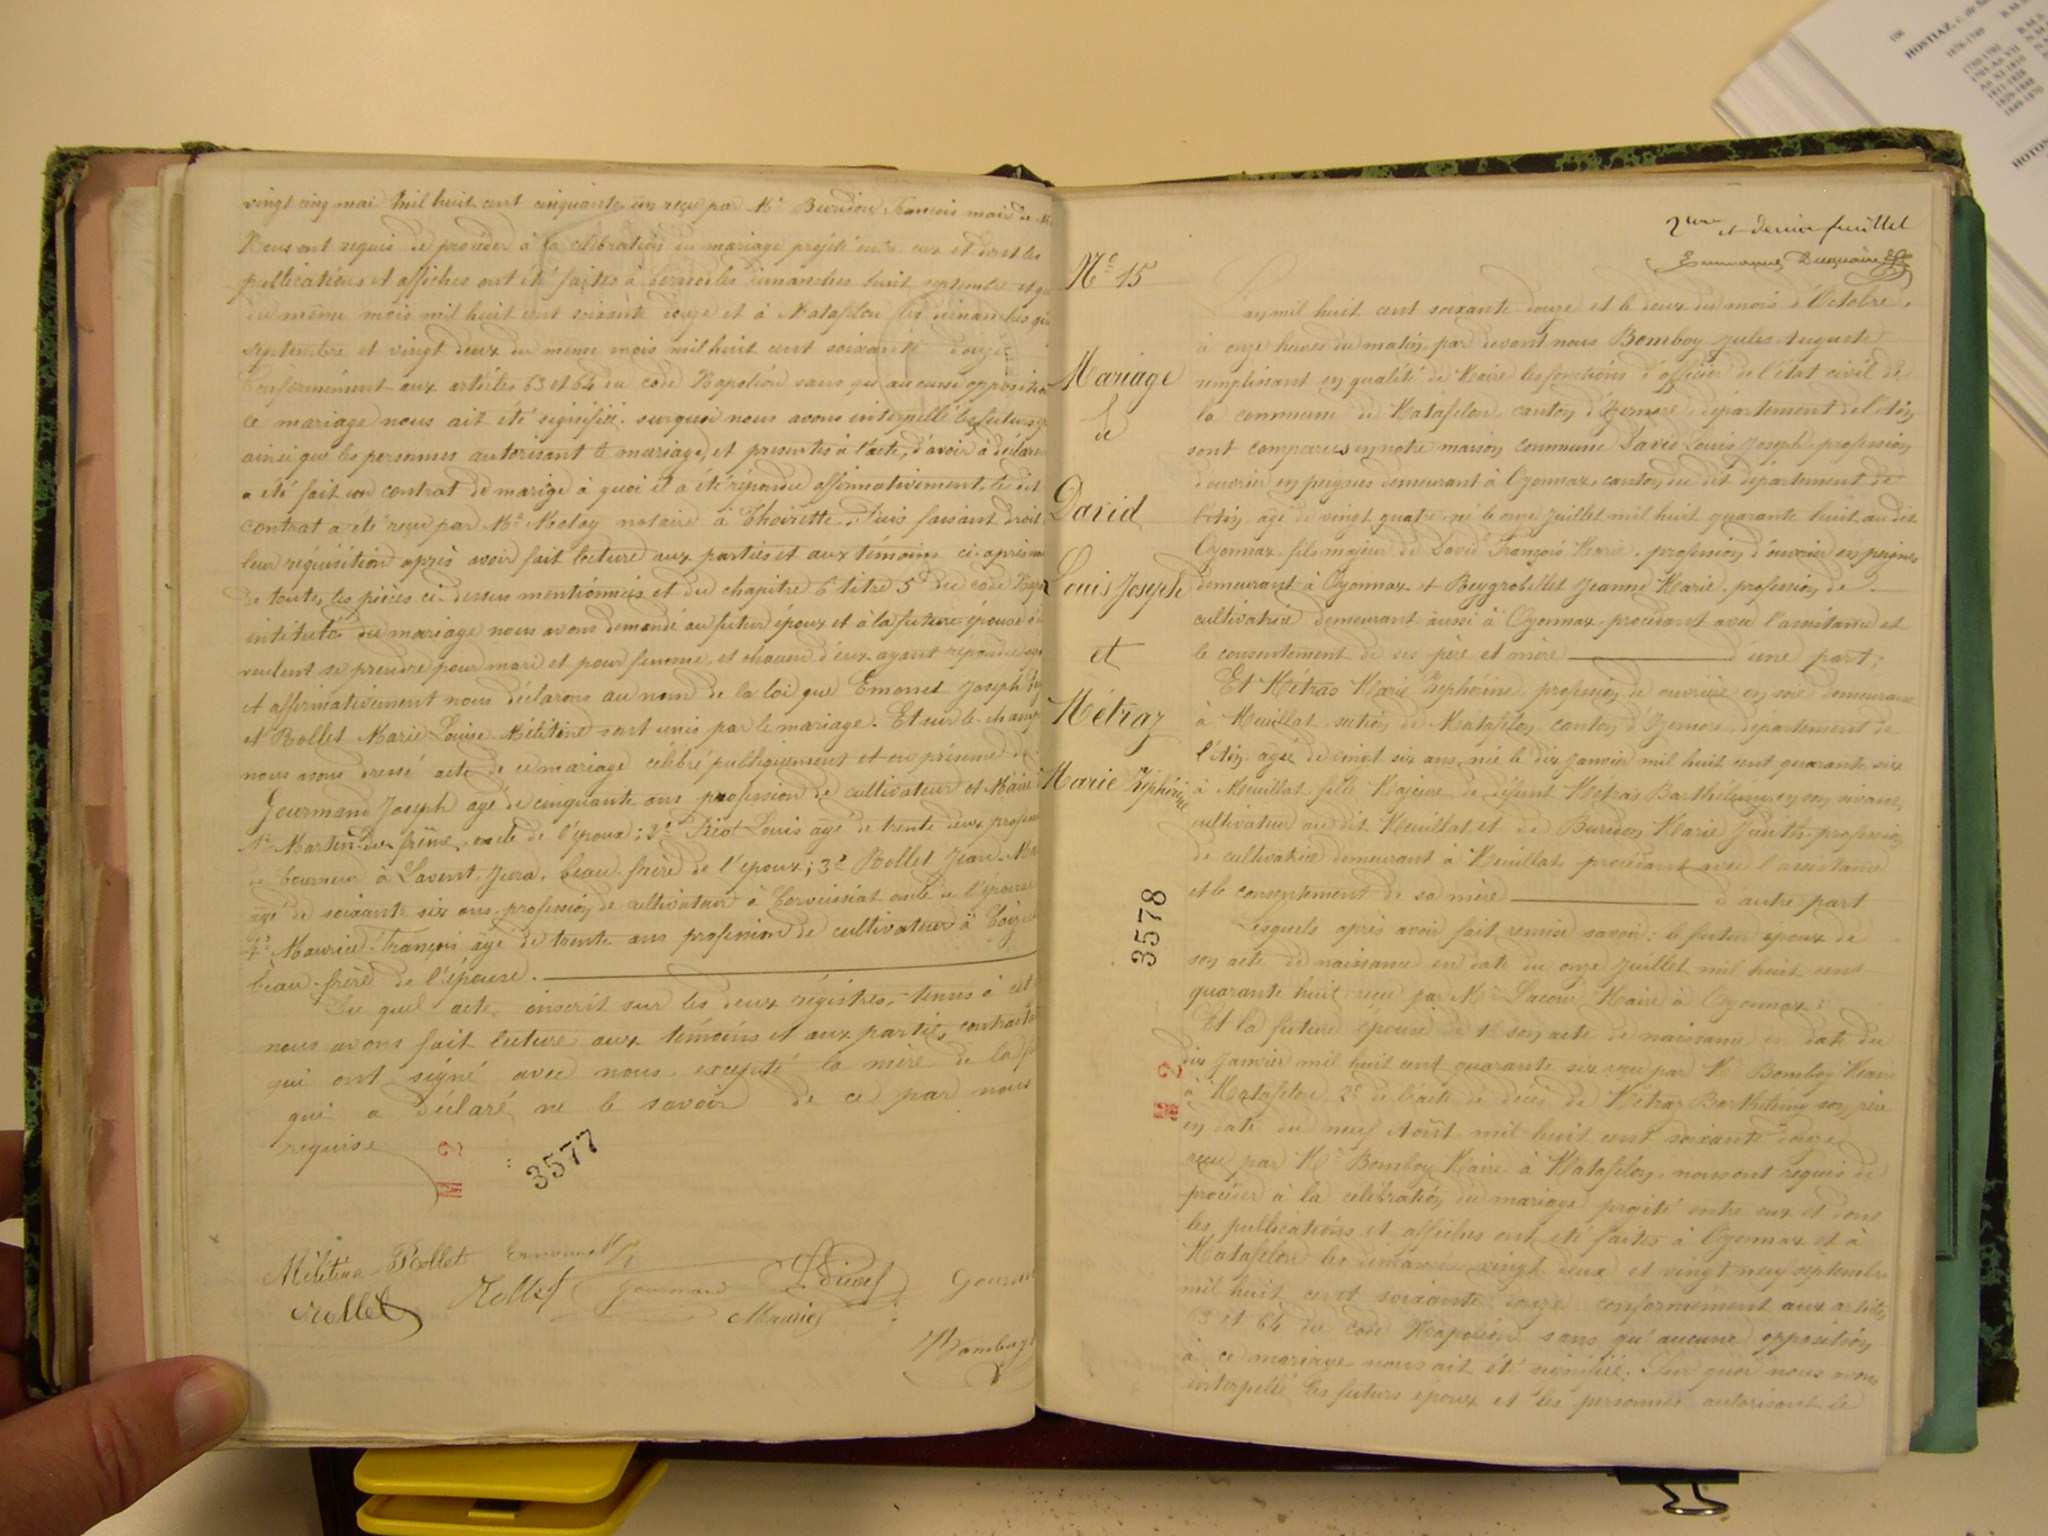 vingt cinq mai mil huit cent cinquante un reçu par Mr Burdon François mair de
Nous ont requis de procéder à la célébration du mariage projeté entre eux et dont les
publications et affiches ont été faites à les dimanches huit septembre et
du même mois mil huit cent soixante douze et à Matafelon les dimanches
septembre et vingt deux du même mois mil huit cent soixante douze
Conformément aux articles 63 et 64 du code Napoléon sans qu'aucune opposition
ce mariage nous ait été signifiée. surquoi nous avons interpellé les futurs
ainsi que les personnes autorisant le mariage, et présentes à l'acte, d'avoir à déclarer
a été fait un contrat de mariage à quoi il a été répondu affirmativement, le dit
contrat a été reçu par Me Meloy notaire à Thoirette. Puis faisant droit
leur réquisition après avoir fait lecture aux parties et aux témoins ci-après
de toutes les pièces ci-dessus mentionnées et du chapitre 6 titre 5 du code
intitulé du mariage nous avons demandé au futur époux et à la future épouse
veulent se prendre pour mari et pour femme, et chacun d'eux ayant répondu
et affirmativement nous déclarons au nom de la loi que Emonet Joseph
et Rollet Marie Louise Mélitine sont unis par le mariage. Et sur le champ
nous avons dressé acte de ce mariage célébré publiquement et en présence de
Gourmand Joseph agé de cinquante ans profession de cultivateur et Maire
St Martin-du-frêne, oncle de l'époux; 2° Louis agé de trente deux
de tourneur à Lavent, Jura, beau frère de l'époux; 3° Rollet Jean
agé de soixante six ans, profession de cultivateur à Corveissiat oncle de l'épouse
4° Maurice François agé de trente ans profession de cultivateur à
beau-frère de l'épouse.
Du quel acte, inscrit sur les deux régistres, tenus à cet
nous avons fait lecture aux témoins et aux parties, contractantes
qui ont signé avec nous excepté la mère de la
qui a déclaré ne le savoir de ce par nous
requise
M 2
3577
Mélitine Rollet
Rollet Rollet Gourmand
Maurice
Bomboy
2ème et dernier feuillet
N° 15
Mariage
de
David
Louis Joseph
et
Métraz
Marie Zéphirine
3578
M 2
L'an mil huit cent soixante douze et le deux du mois d'Octobre,
à onze heures du matin, par devant nous Bomboy Jules Auguste
remplissant en qualité de Maire les fonctions d'officier de l'état civil de
la commune de Matafelon, canton d'Izernore, département de l'Ain,
sont comparus en notre maison commune David Louis Joseph, profession
d'ouvrier en peignes demeurant à Oyonnax, canton du dit département de
l'Ain, agé de vingt quatre, né le onze Juillet mil huit quarante huit au dit
Oyonnax, fils majeur de David François Marie, profession d'ouvrier en peignes
demeurant à Oyonnax et Reygrobellet Jeanne Marie, profession de
cultivatrice demeurant aussi à Oyonnax, procédant avec l'assistance et
le consentement de ses père et mère d'une part;
Et Métras Marie Zéphirine, profession de ouvrière en soie demeurant
à Meuillat section de Matafelon canton d'Izernore département de
l'Ain, agée de vingt six ans, née le dix Janvier mil huit cent quarante six
à Meuillat, fille Majeure de défunt Métras Barthélemy en son vivant,
cultivateur au dit Meuillat et de Burdon Marie Judith, profession
de cultivatrice demeurant à Meuillat, procédant avec l'assistance
et le consentement de sa mère d'autre part
Lesquels après avoir fait remise savoir: le futur époux de
son acte de naissance en date du onze Juillet mil huit cent
quarante huit reçu par Mr Lacour Maire à Oyonnax:
Et la future épouse de 1° son acte de naissance en date du
dix Janvier mil huit cent quarante six reçu par Mr Bomboy Maire
à Matafelon, 2° de l'acte de décès de Métraz Barthélemy son père
en date du neuf Août mil huit cent soixante douze
reçu par Mr Bomboy Maire à Matafelon, nous ont requis de
procéder à la célébration du mariage projeté entre eux et dont
les publications et affiches ont été faites à Oyonnax et à
Matafelon les dimanches vingt deux et vingt neuf septembre
mil huit cent soixante douze conformément aux articles
63 et 64 du code Napoléon sans qu'aucune opposition
à ce mariage nous ait été signifiée. Sur quoi nous avons
interpellé les futurs époux et les personnes autorisant le
106
HOSTIAZ, c. de